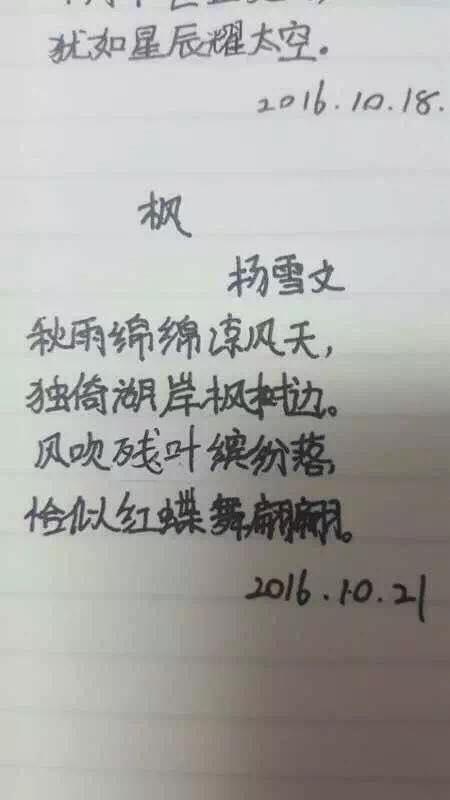 犹如星辰耀太空。
2016.10.18.
枫
杨雪文
秋雨绵绵凉风天，
独倚湖岸枫树边。
风吹残叶缤纷落，
恰似红蝶舞翩翩。
2016.10.21